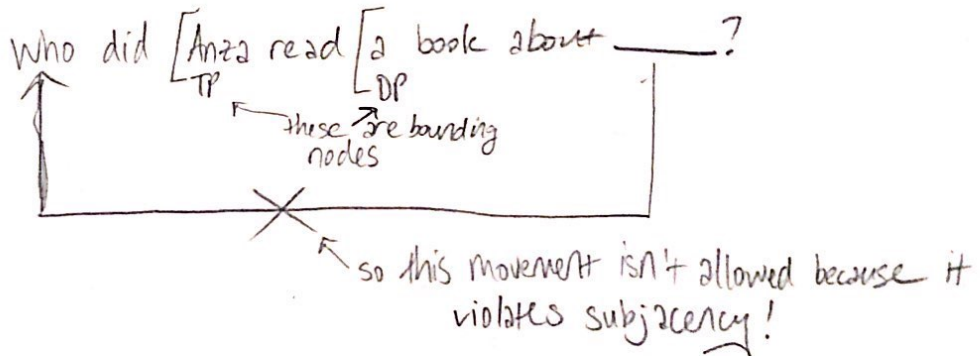 Who did [Anza read [a book about ____?
TP DP
these are bounding
nodes
so this movement isn't allowed because it
violates subjacency!